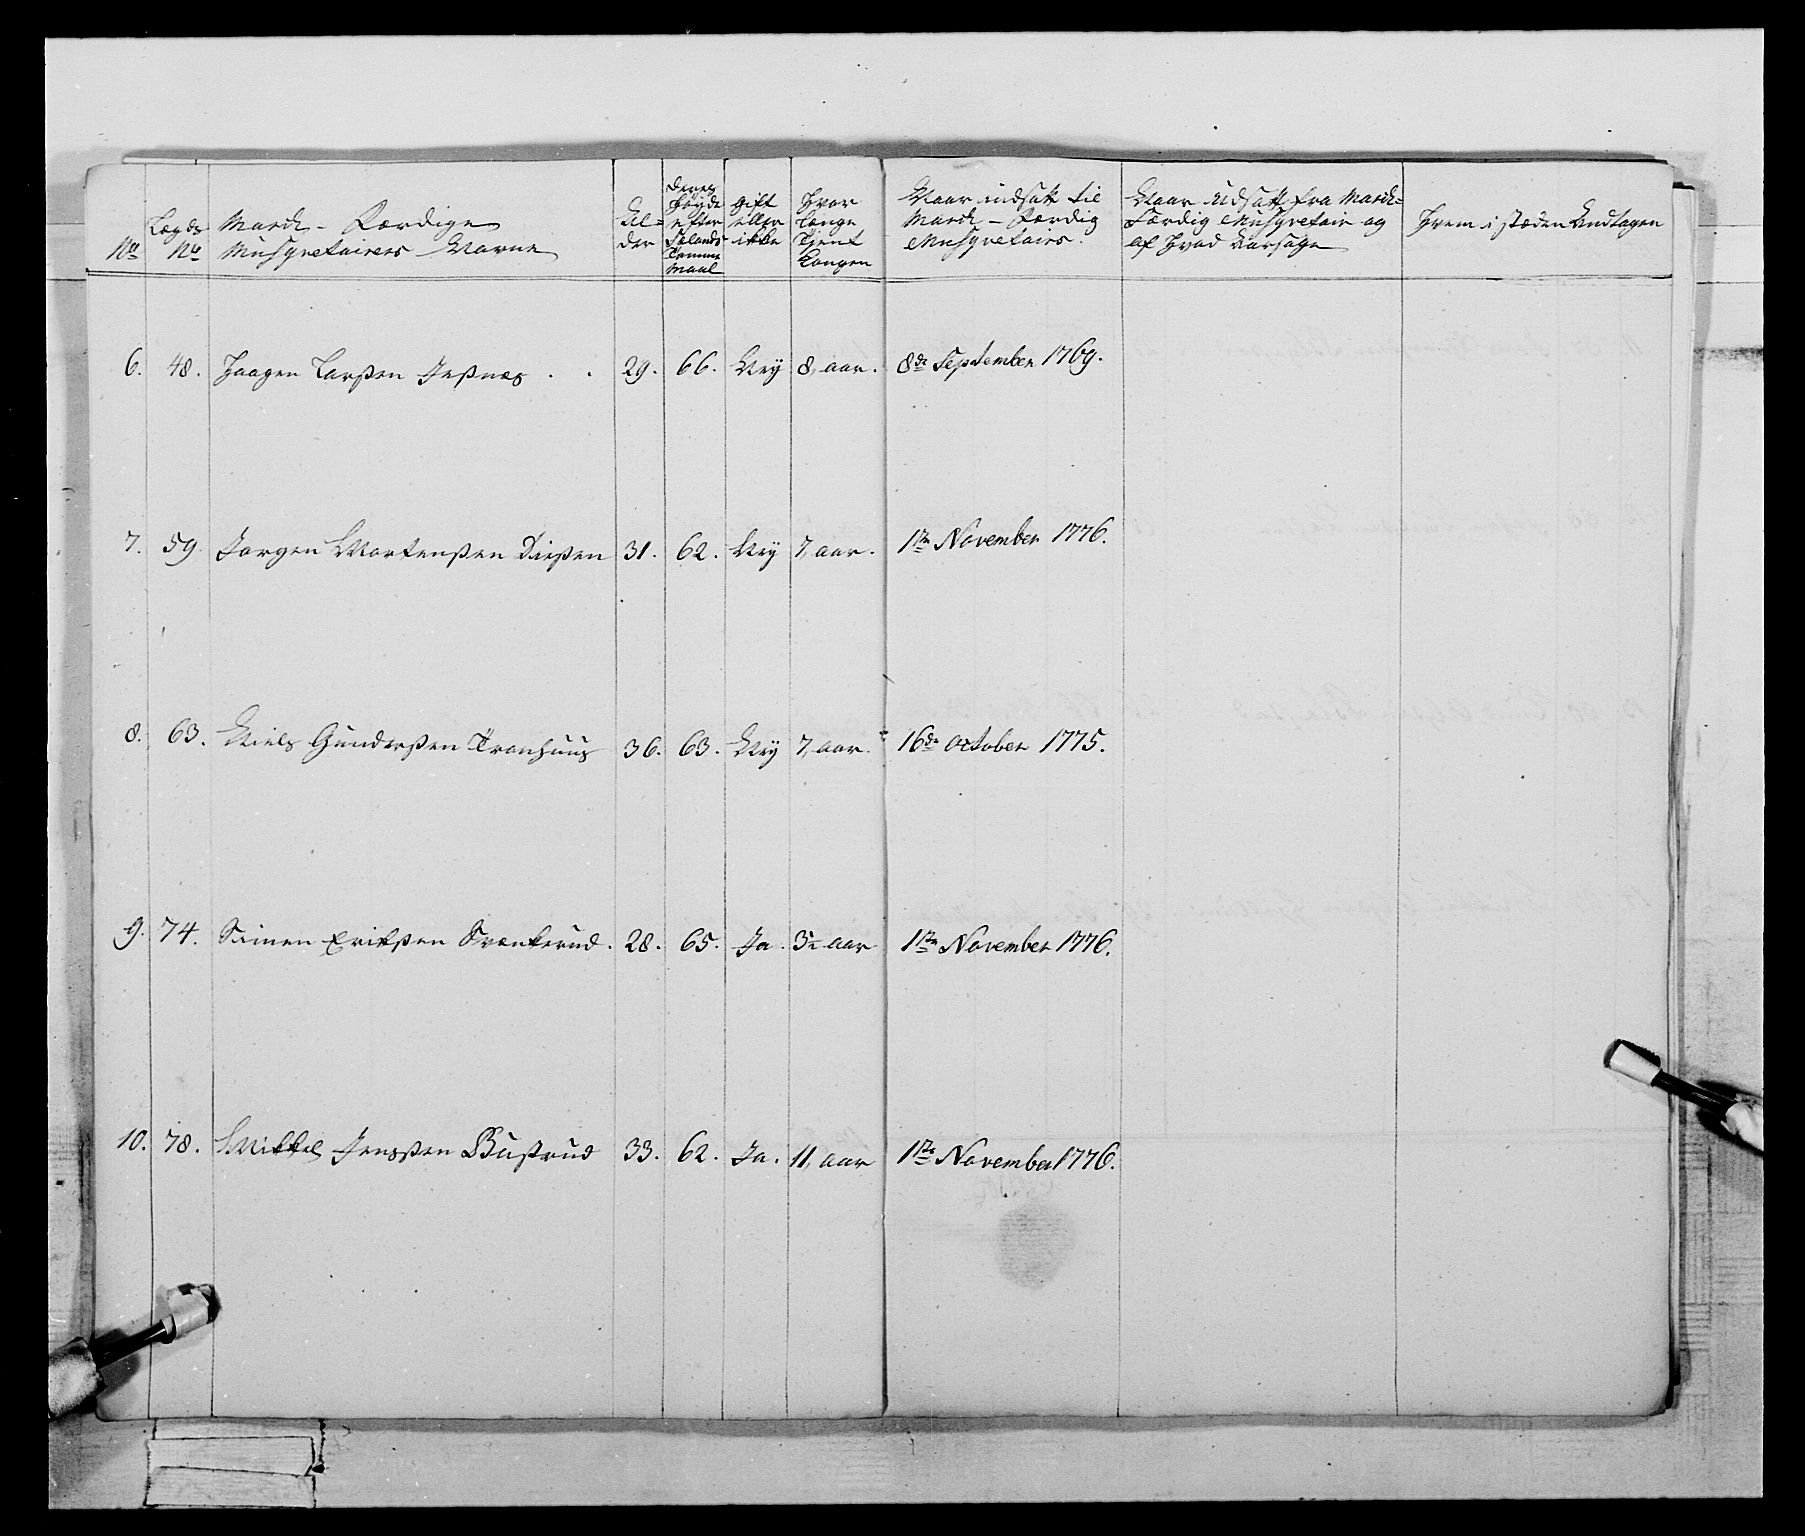 No Lægds No March-Færdige Musqvetairers Navne Al= der Deres Høyde efter Sælands Tomme Maal Gift eller ikke Hvor Længe Tjent Kongen Naar udsatt til March-Færdig Musqvetairs. Naar udsatt fra March= Færdig Musqvetair og af Hvad Aarsage Hvem i stæden Andtagen
6. 48. Haagen Larßen Jeßnæs . . 29. 66. Ney 8, aar. 8de September 1769.
7. 59. Jørgen Mortenßen Dießen 31. 62. Ney 7, aar. 1ten November 1776.
8. 63. Niels Gunderßen Tranhuus 36. 63. Ney 7, aar. 16de October 1775.
9. 74. Simen Erikßen Svenkerud. 28. 65. Ja. 5 aar 1ten November 1776.
10. 78. Mikkel Jensßen Bustrud 33. 62. Ja. 11, aar 1ten November 1776.